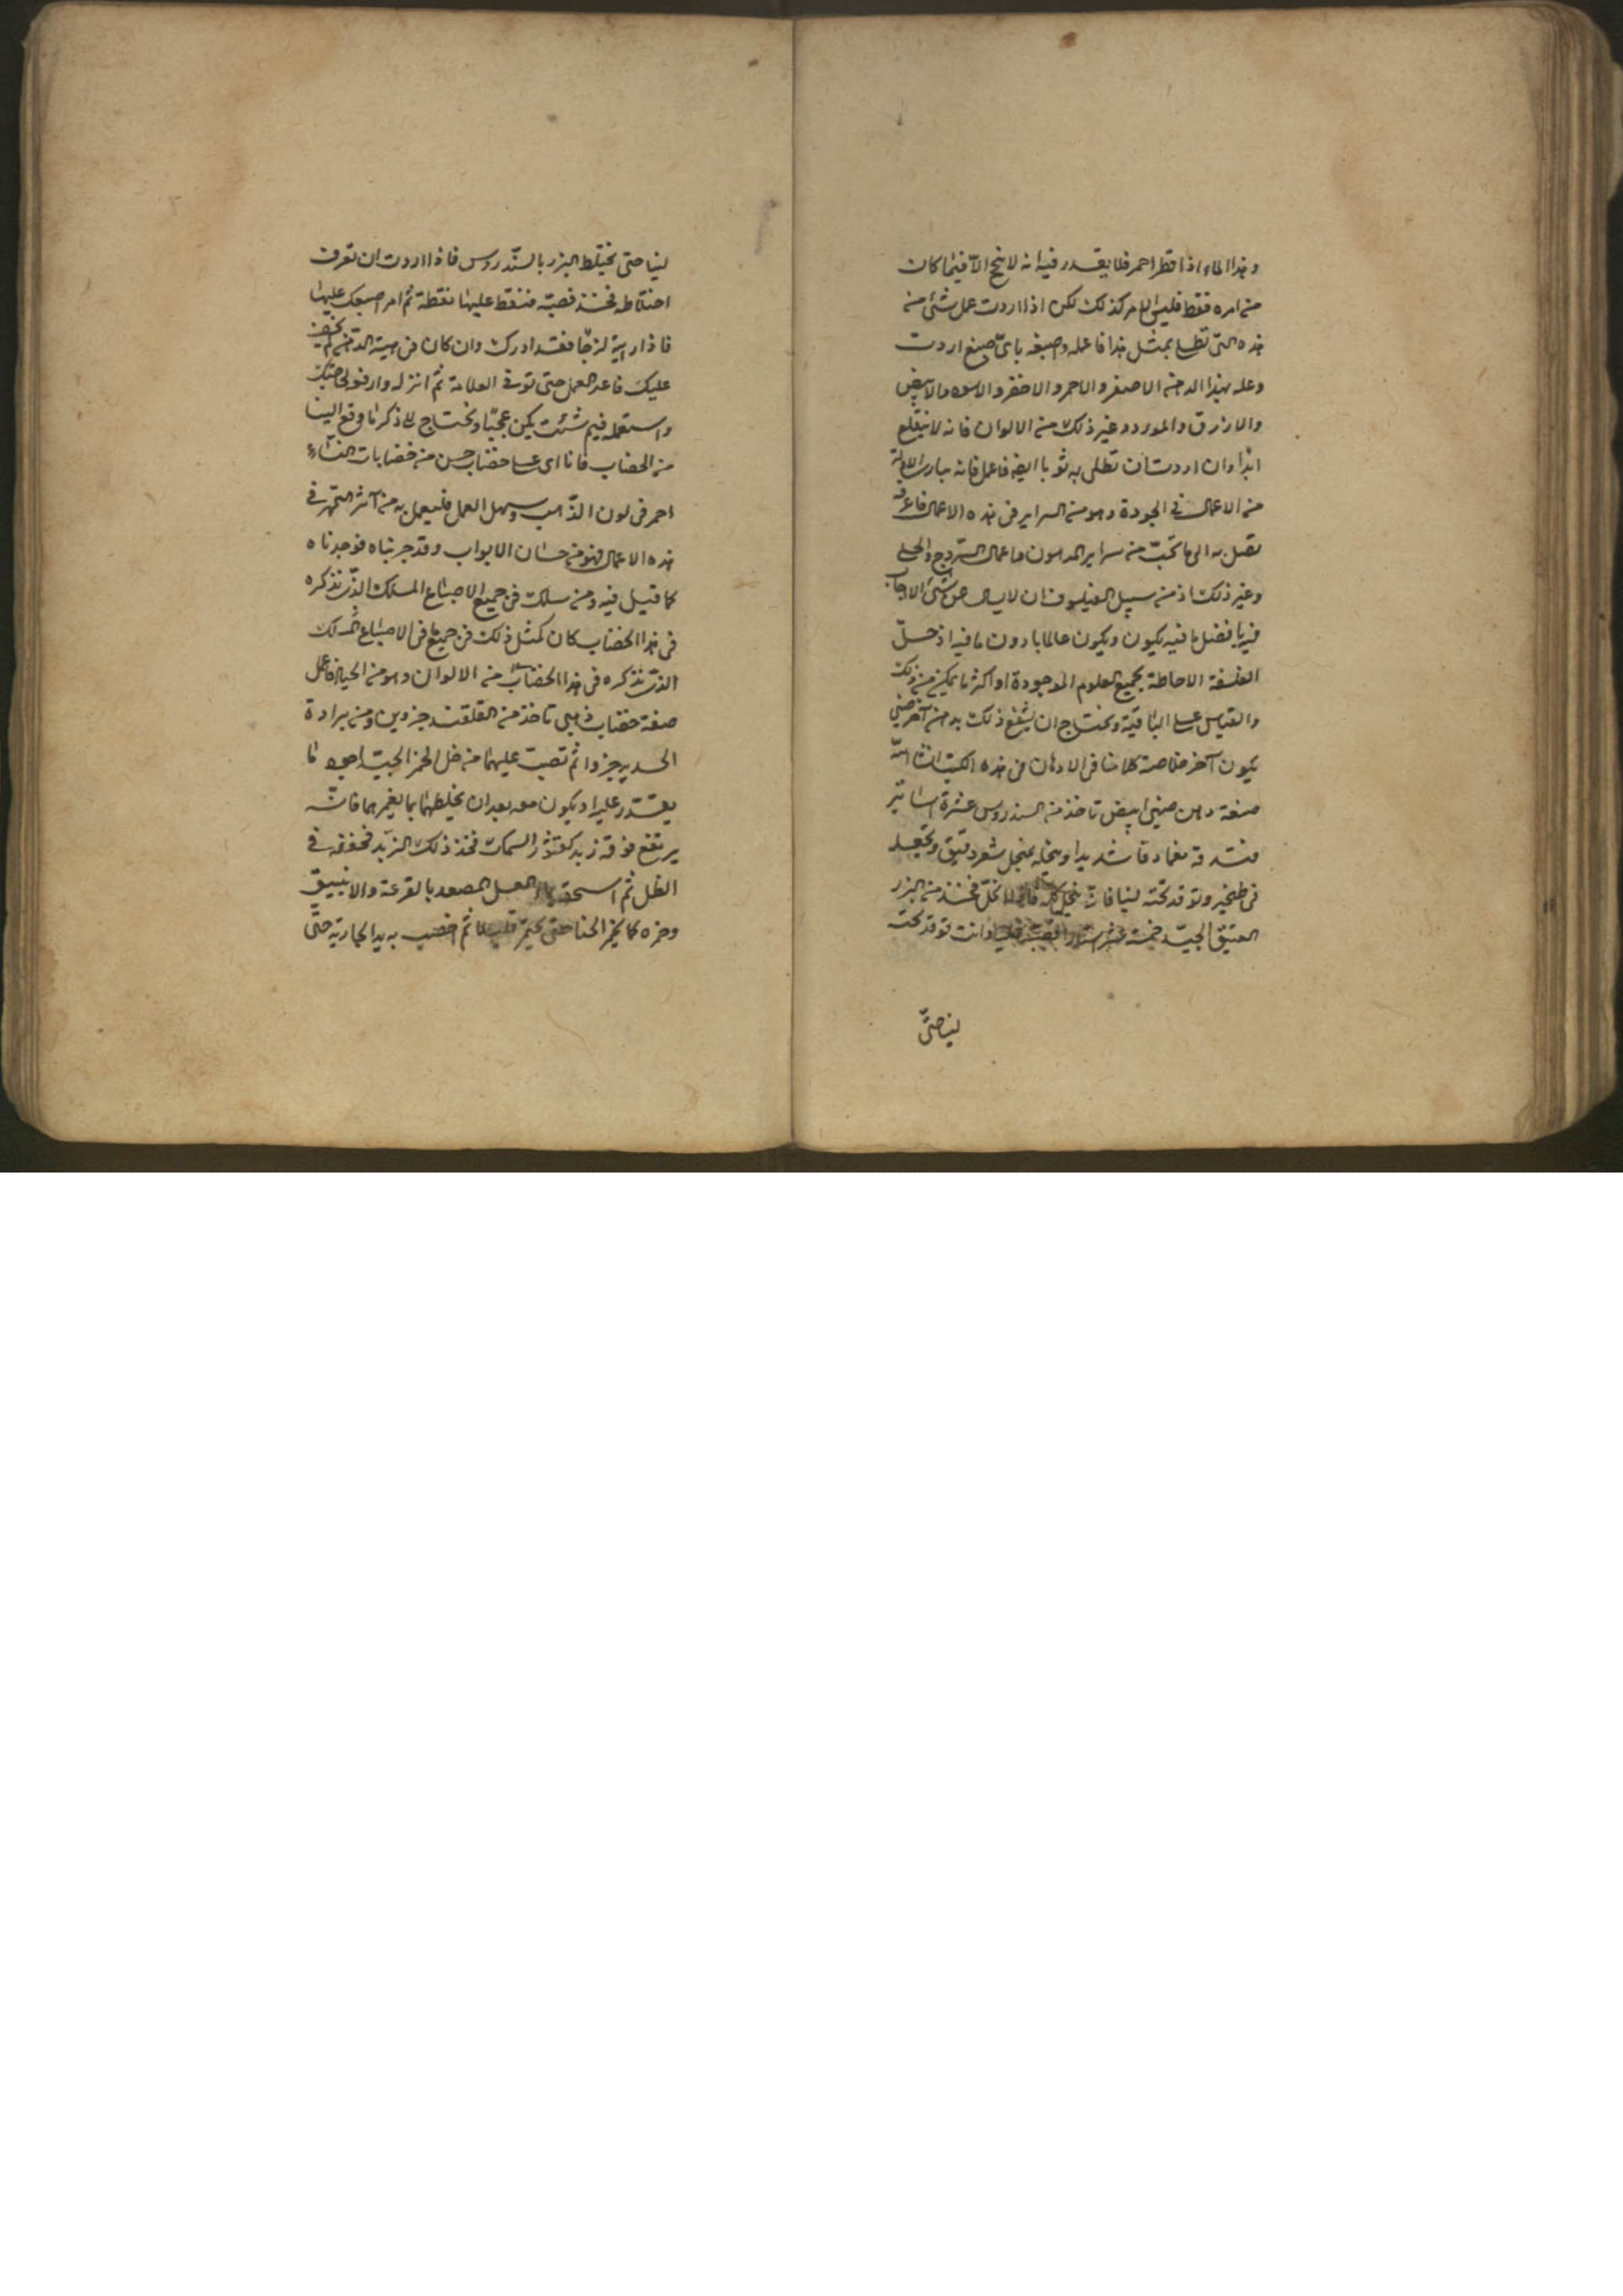 وهذا الماء اذا قطر احمر فلا يقدر فيه انه لا ينجح الا فيما كان
من امره فقط فليس الامر كذلك لكن اذا اردت عمل شئ من
هذه التى تطلى بمثل هذا فاعمله واصبغه باىّ صبغ اردت
وعله بهذا الدهن الاصفر والاحمر والاخضر والاسود والابيض
والازرق والمورد وغير ذلك من الالوان فانه لا ينقلع
ابدا وان اردت ان تطلى به ثوبا ابيض فاعمل فانه
من الاعمال فى الجودة وهو من السراير فى هذه الاعمال فاعرفه
تصل به الى ما تحبّ من سراير الدهون واعمال السروج والحلى
وغير ذلك اذ من سبيل الفيلسوف ان لا
بافضل ما فيه يكون ويكون عالما بادون ما فيه اذ حدّ
الفلسفة الاحاطة بجميع العلوم الموجودة او اكثر ما يمكن من ذلك
والقياس على الباقية وتحتاج ان يشفع ذلك بدهن آخر صينى
يكون آخر خلاصة كلامنا فى الادهان فى هذه الكتب ان شا الله
صفة دهن صينى ابيض تاخذ من السندروس عشرة اساتير
فتدقه نعما دقا شديدا وتنخله بمنخل شعر دقيق وتجعله
فى طنجير وتوقد تحته لينا فانه ينحل كله فاذا انحلّ فخذ من البزر
العتيق الجيّد خمسة عشر استارا فصبّه عليه وانت توقد تحته
لينا حتّى
لينا حتى يختلط البزر بالسّندروس فاذا اردت ان تعرف
اختلاطه فخذ قصبة فنقط عليها نقطة ثم امر اصبعك عليها
فاذا رايته لزجا فقد ادرك وان كان فى هيئة الدهن لم يخف
عليك فاعد العمل حتى توفى العلامة ثم انزله وارفعه لحاجتك
واستعمله فيم شئت يكن عجيبا ونحتاج الى ذكر ما وقع الينا
من الخضاب فانا اى على خضاب حسن من خضابات النساء
احمر فى لون الذّهب وسهل العمل فليعمل به من آثر التمهر فى
هذه الاعمال فهو من حسان الابواب وقد جربناه فوجدناه
كما قيل فيه ومن سلك فى جميع الاصباغ المسلك الذى نذكره
فى هذا الخضاب كان كمثل ذلك فى جميع ما فى الاصباغ المسلك
الذى نذكره فى هذا الخضاب من الالوان وهو من الحيل فاعمل
صفة خضاب ذهبى تاخذ من القلقند جزوين ومن برادة
الحديد جزوا ثم تصب عليهما من خل الخمر الجيّد اجود ما
يقدر عليه او يكون معه بعد ان يخلطهما بما يغمرهما فانّه
يرتفع فوقه زبد كقشور السمك فخذ ذلك الزبد فجففه فى
الظل ثم اسحقه بالعسل المصعد بالقرعة والانبيق
وخمره كما يخمر الحنا حتى يختمر قليلا ثم اخضب به يد الجارية حتّى